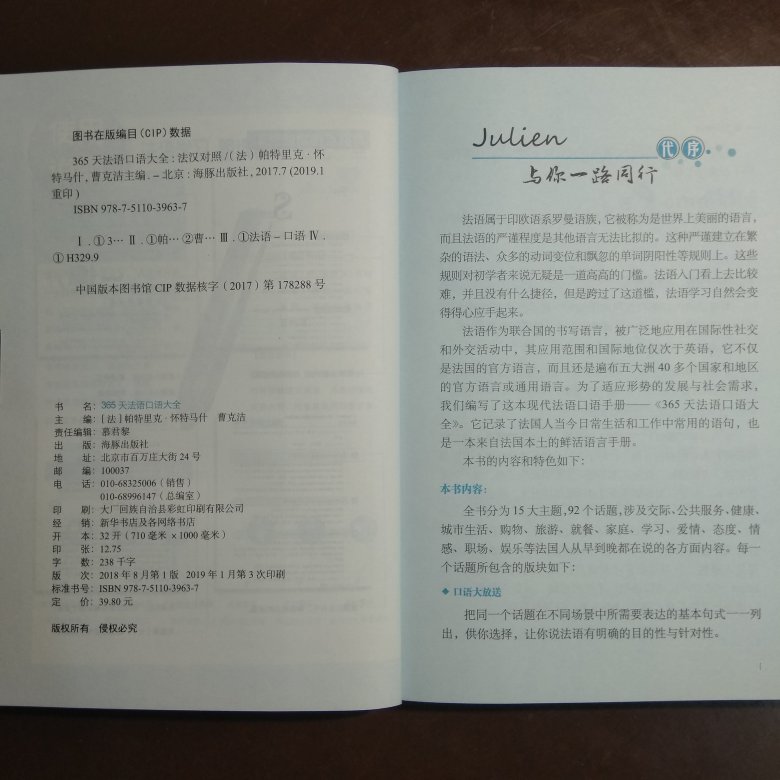 图书在版编目(CIP)数据
365 天法语口语大全:法汉对照/(法)帕特里克·怀
特马什,曹克洁主编. – 北京:海豚出版社,2017.7 (2019.1
重印)
ISBN 978-7-5110-3963-7
Ⅰ.①3… Ⅱ.①帕… ②曹… Ⅲ.①法语 – 口语 Ⅳ.
①H329.9
中国版本图书馆 CIP 数据核字(2017)第 178288 号
书 名:365 天法语口语大全
主 编:[法]帕特里克·怀特马什 曹克洁
责任编辑:慕君黎
出 版:海豚出版社
地 址:北京市百万庄大街 24 号
邮 编:100037
电 话:010-68325006(销售)
010-68996147(总编室)
印 刷:大厂回族自治县彩虹印刷有限公司
经 销:新华书店及各网络书店
开 本:32 开(710 毫米 ×1000 毫米)
印 张:12.75
字 数:238 千字
版 次:2018 年 8 月第 1 版 2019 年 1 月第 3 次印刷
标准书号:ISBN 978-7-5110-3963-7
定 价:39.80 元
版权所有 侵权必究
Julien 代序
与你一路同行
法语属于印欧语系罗曼语族,它被称为是世界上美丽的语言,
而且法语的严谨程度是其他语言无法比拟的。这种严谨建立在繁
杂的语法、众多的动词变位和飘忽的单词阴阳性等规则上。这些
规则对初学者来说无疑是一道高高的门槛。法语入门看上去比较
难,并且没有什么捷径,但是跨过了这道槛,法语学习自然会变
得得心应手起来。
法语作为联合国的书写语言,被广泛地应用在国际性社交
和外交活动中,其应用范围和国际地位仅次于英语,它不仅
是法国的官方语言,而且还是遍布五大洲 40 多个国家和地区
的官方语言或通用语言。为了适应形势的发展与社会需求,
我们编写了这本现代法语口语手册——《365 天法语口语大
全》。它记录了法国人当今日常生活和工作中常用的语句,也
是一本来自法国本土的鲜活语言手册。
本书的内容和特色如下:
本书内容:
全书分为 15 大主题,92 个话题,涉及交际、公共服务、健康、
城市生活、购物、旅游、就餐、家庭、学习、爱情、态度、情
感、职场、娱乐等法国人从早到晚都在说的各方面内容。每一
个话题所包含的版块如下:
◆ 口语大放送
把同一个话题在不同场景中所需要表达的基本句式一一列
出,供你选择,让你说法语有明确的目的性与针对性。
1